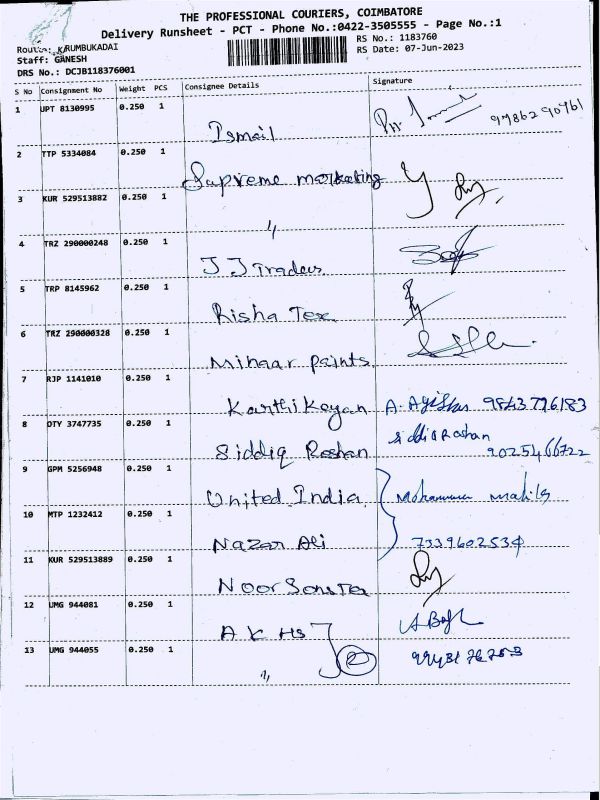 THE PROFESSIONAL COURIERS, COIMBATORE
Delivery Runsheet - PCT - Phone No.:0422-3505555 - Page No.:1
Route: KARUMBUKADAI RS No.: 1183760
Staff: GANESH RS Date: 07-Jun-2023
DRS No.: DCJB118376001
S No Consignment No Weight PCS Consignee Details Signature
1 UPT 8130995 0.250 1 Ismail
2 TTP 5334084 0.250 1 Supreme marketing
3 KUR 529513882 0.250 1 "
4 TRZ 290000248 0.250 1 JJ Traders
5 TRP 8145962 0.250 1 Risha Tex
6 TRZ 290000328 0.250 1 Minaar paints
7 RJP 1141010 0.250 1 Karthikeyan 9843796183
8 DTY 3747735 0.250 1 Siddiq Roshan siddiq Roshan 9025466722
9 GPM 5256948 0.250 1 United India
10 MTP 1232412 0.250 1 Nazar Ali 7339602534
11 KUR 529513889 0.250 1
12 UMG 944081 0.250 1 A K Hs
13 UMG 944055 0.250 1 " 2